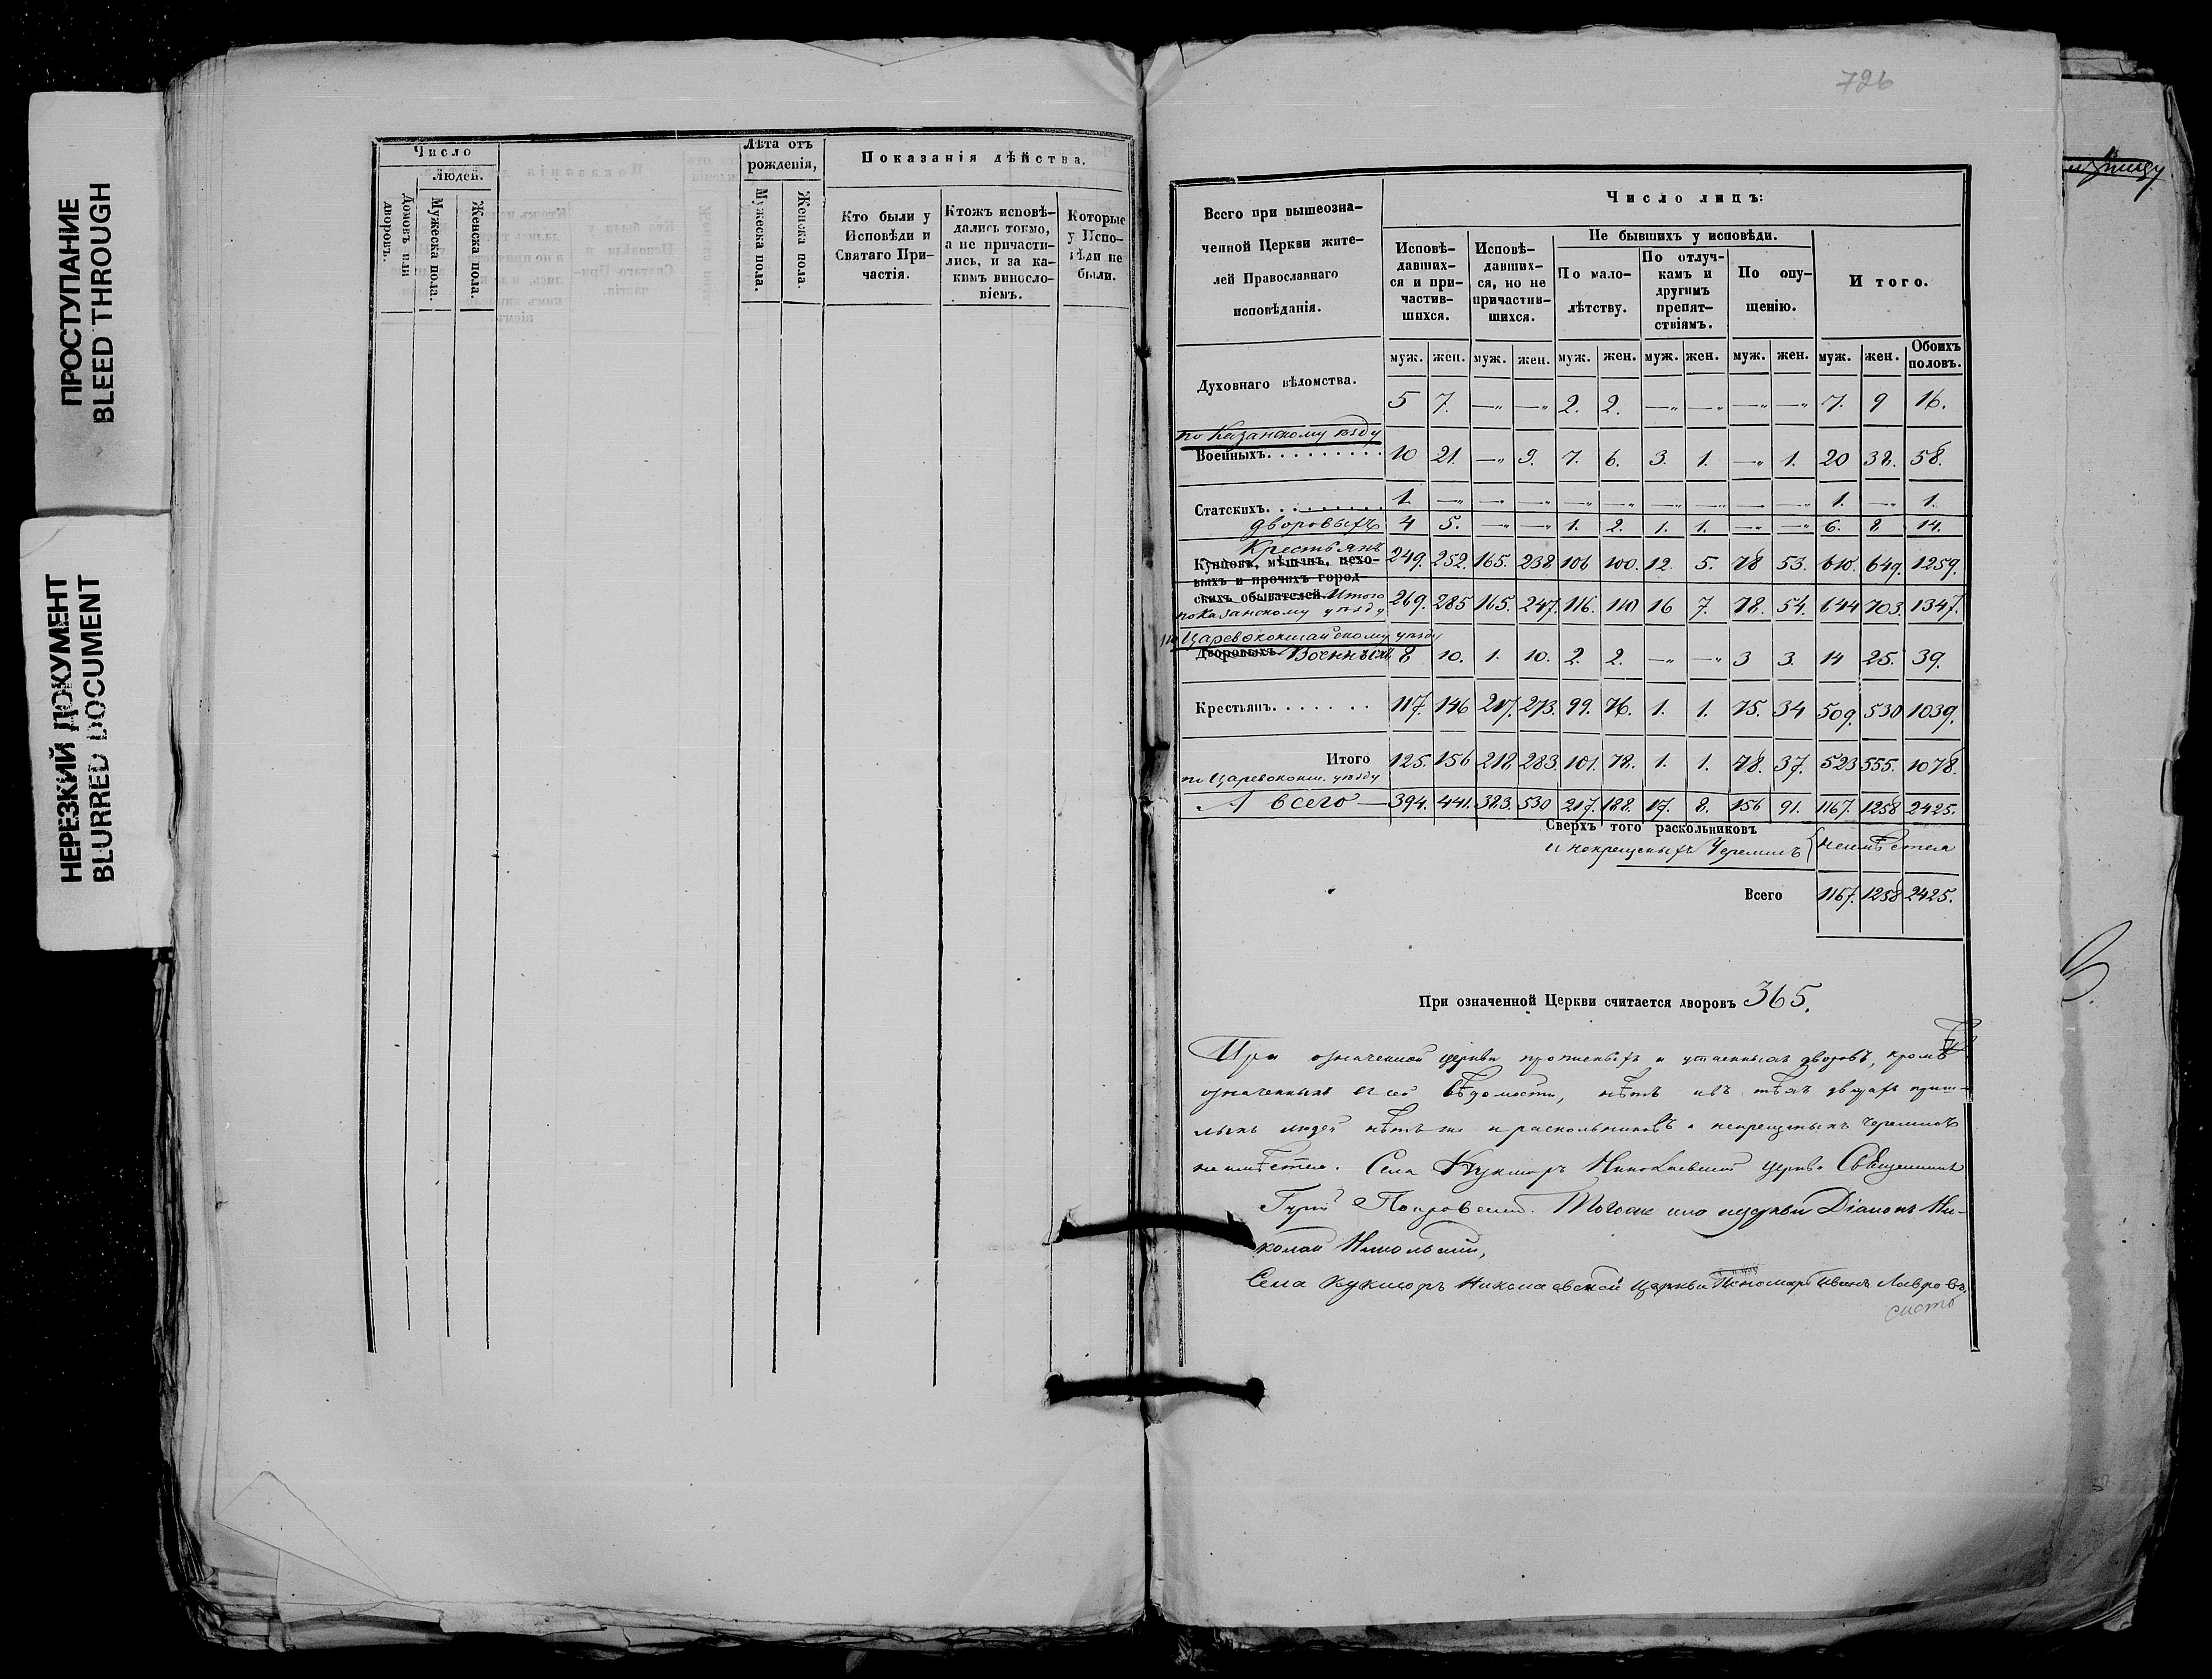 ПРОСТУПАНИЕ
BLEED THROUGH
НЕРЕЗКИЙ ДОКУМЕНТ
BLURRED DOCUMENT
Число
Людей.
Домовъ или дворовъ.
Мужеска пола.
Женска пола.
Лѣта отъ рожденія,
Мужеска пола.
Женска пола.
Показанія дѣйства.
Кто были у Исповѣди и Святаго Причастія.
Ктожъ исповѣдались токмо, а не причастились, и за какимъ винословіемъ.
Которые у Исповѣди не были.
726
Всего при вышеозначенной Церкви жителей Православнаго исповѣданія.
Число лицъ:
Исповѣдавшихся и причастившихся.
Исповѣдавшихся, но не причастившихся.
Не бывшихъ у исповѣди.
По малолѣтству.
По отлучкамъ и другимъ препятствіямъ.
По опущенію.
Итого.
муж. жен. муж. жен. муж. жен. муж. жен. муж. жен. муж. жен. Обоихъ половъ.
Духовнаго вѣдомства. 5 7. —„ —„ 2. 2. —„ —„ —„ —„ 7. 9 16.
по Казанскому уѣзду
Военныхъ. 10 21. —„ 9. 7. 6. 3. 1. —„ 1. 20 38. 58.
Статскихъ. 1. —„ —„ —„ —„ —„ —„ —„ —„ —„ 1. —„ 1.
дворовыхъ 4 5. —„ —„ 1. 2. 1. 1. —„ —„ 6. 8. 14.
Крестьянъ 249. 252. 165. 238. 106 100. 12. 5. 78 53. 610. 649. 1259.
Купцовъ, мѣщанъ, цеховыхъ и прочихъ городскихъ обывателей.
Итого по Казанскому уѣзду 269. 285 165. 247. 116. 110 16 7. 78. 54. 644 703. 1347.
по Царевококшайскому уѣзду
Дворовыхъ. Военныхъ 8 10. 1. 10. 2. 2. —„ —„ 3 3. 14 25. 39.
Крестьянъ. 117. 146 217. 273. 99. 76. 1. 1. 75. 34 509. 530 1039.
Итого 125. 156 218. 283. 101. 78. 1. 1. 78. 37. 523 555. 1078.
по Царевококш. уѣзду
А всего — 394. 441. 383. 530 217. 188. 17. 8. 156 91. 1167. 1258 2425.
Сверхъ того раскольниковъ
и некрещеныхъ Черемисъ неимѣется
Всего 1167. 1258 2425.
При означенной Церкви считается дворовъ 365.
При означенной церкви прописныхъ и утаенныхъ дворовъ, кромѣ
означенныхъ въ сей вѣдомости, нѣтъ
людей нѣтъ же и раскольниковъ и некрещеныхъ черемисъ
не имѣется. Села Кукморъ Николаевской церкви Священникъ
Гурій Покровскій. Тойже церкви Діаконъ Ни-
колай Никольскій,
Села Кукморъ Николаевской Церкви Пономарь Иванъ Лавровъ,